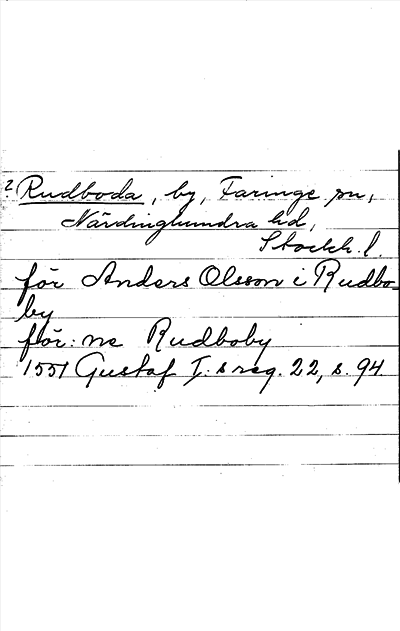 2 Rudboda, by, Faringe sn,
Närdinghundra hd,
Stockh. l.
för Anders Olsson i Rudbo-
by
för: ne Rudboby
1551 Gustaf I:s reg. 22, s. 94.